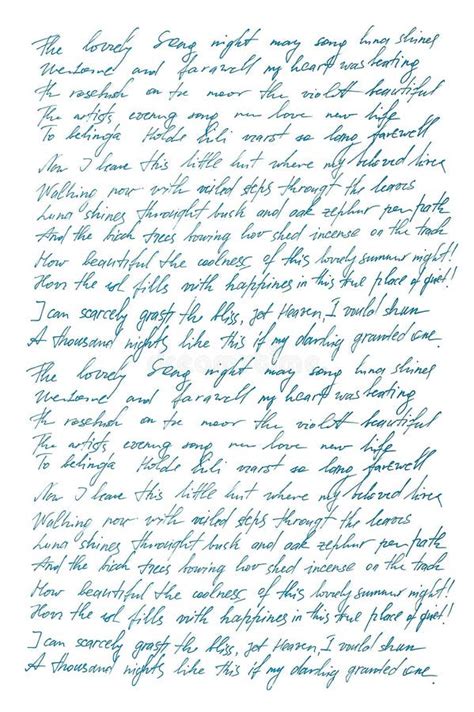 The lovely Song night may song luna shines
Welcome and farawell my heart was beating
The rosebush on the moor the violet beautiful
The artists evening song new love new life
To belinda Holde Lili warst so long farewell
Now I leave this little hut where my beloved lives
Walking now with veiled steps througt the leaves
Luna shines throught bush and oak zephur per path
And the birch trees bowing how shed incense on the track
How beautiful the coolness of this lovely summer night!
How the sol fills with happines in this true place of quiet!
I can scarcely grasp the bliss, jet Heaven, I vould shun
A thousand nights like this if my darling granted one.
The lovely Song night may song luna shines
Welcome and farawell my heart was beating
The rosebush on the moor the violet beautiful
The artists evening song new love new life
To belinda Holde Lili warst so long farewell
Now I leave this little hut where my beloved lives
Walking now with veiled steps througt the leaves
Luna shines throught bush and oak zephur per path
And the birch trees bowing how shed incense on the track
How beautiful the coolness of this lovely summer night!
How the sol fills with happines in this true place of quiet!
I can scarcely grasp the bliss, jet Heaven, I vould shun
A thousand nights like this if my darling granted one.